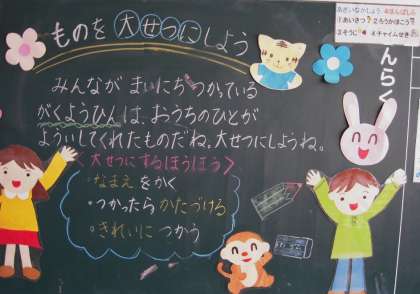 ものを大せつにしよう
みんなが まいにち つかっている
がくようひんは、おうちのひとが
よういしてくれたものだね。大せつにしようね。
<大せつにするほうほう>
・なまえをかく
・つかったら かたづける
・きれいに つかう
んらく
①あいさつ
②ろうかほこう
③そうじ
④チャイムせき